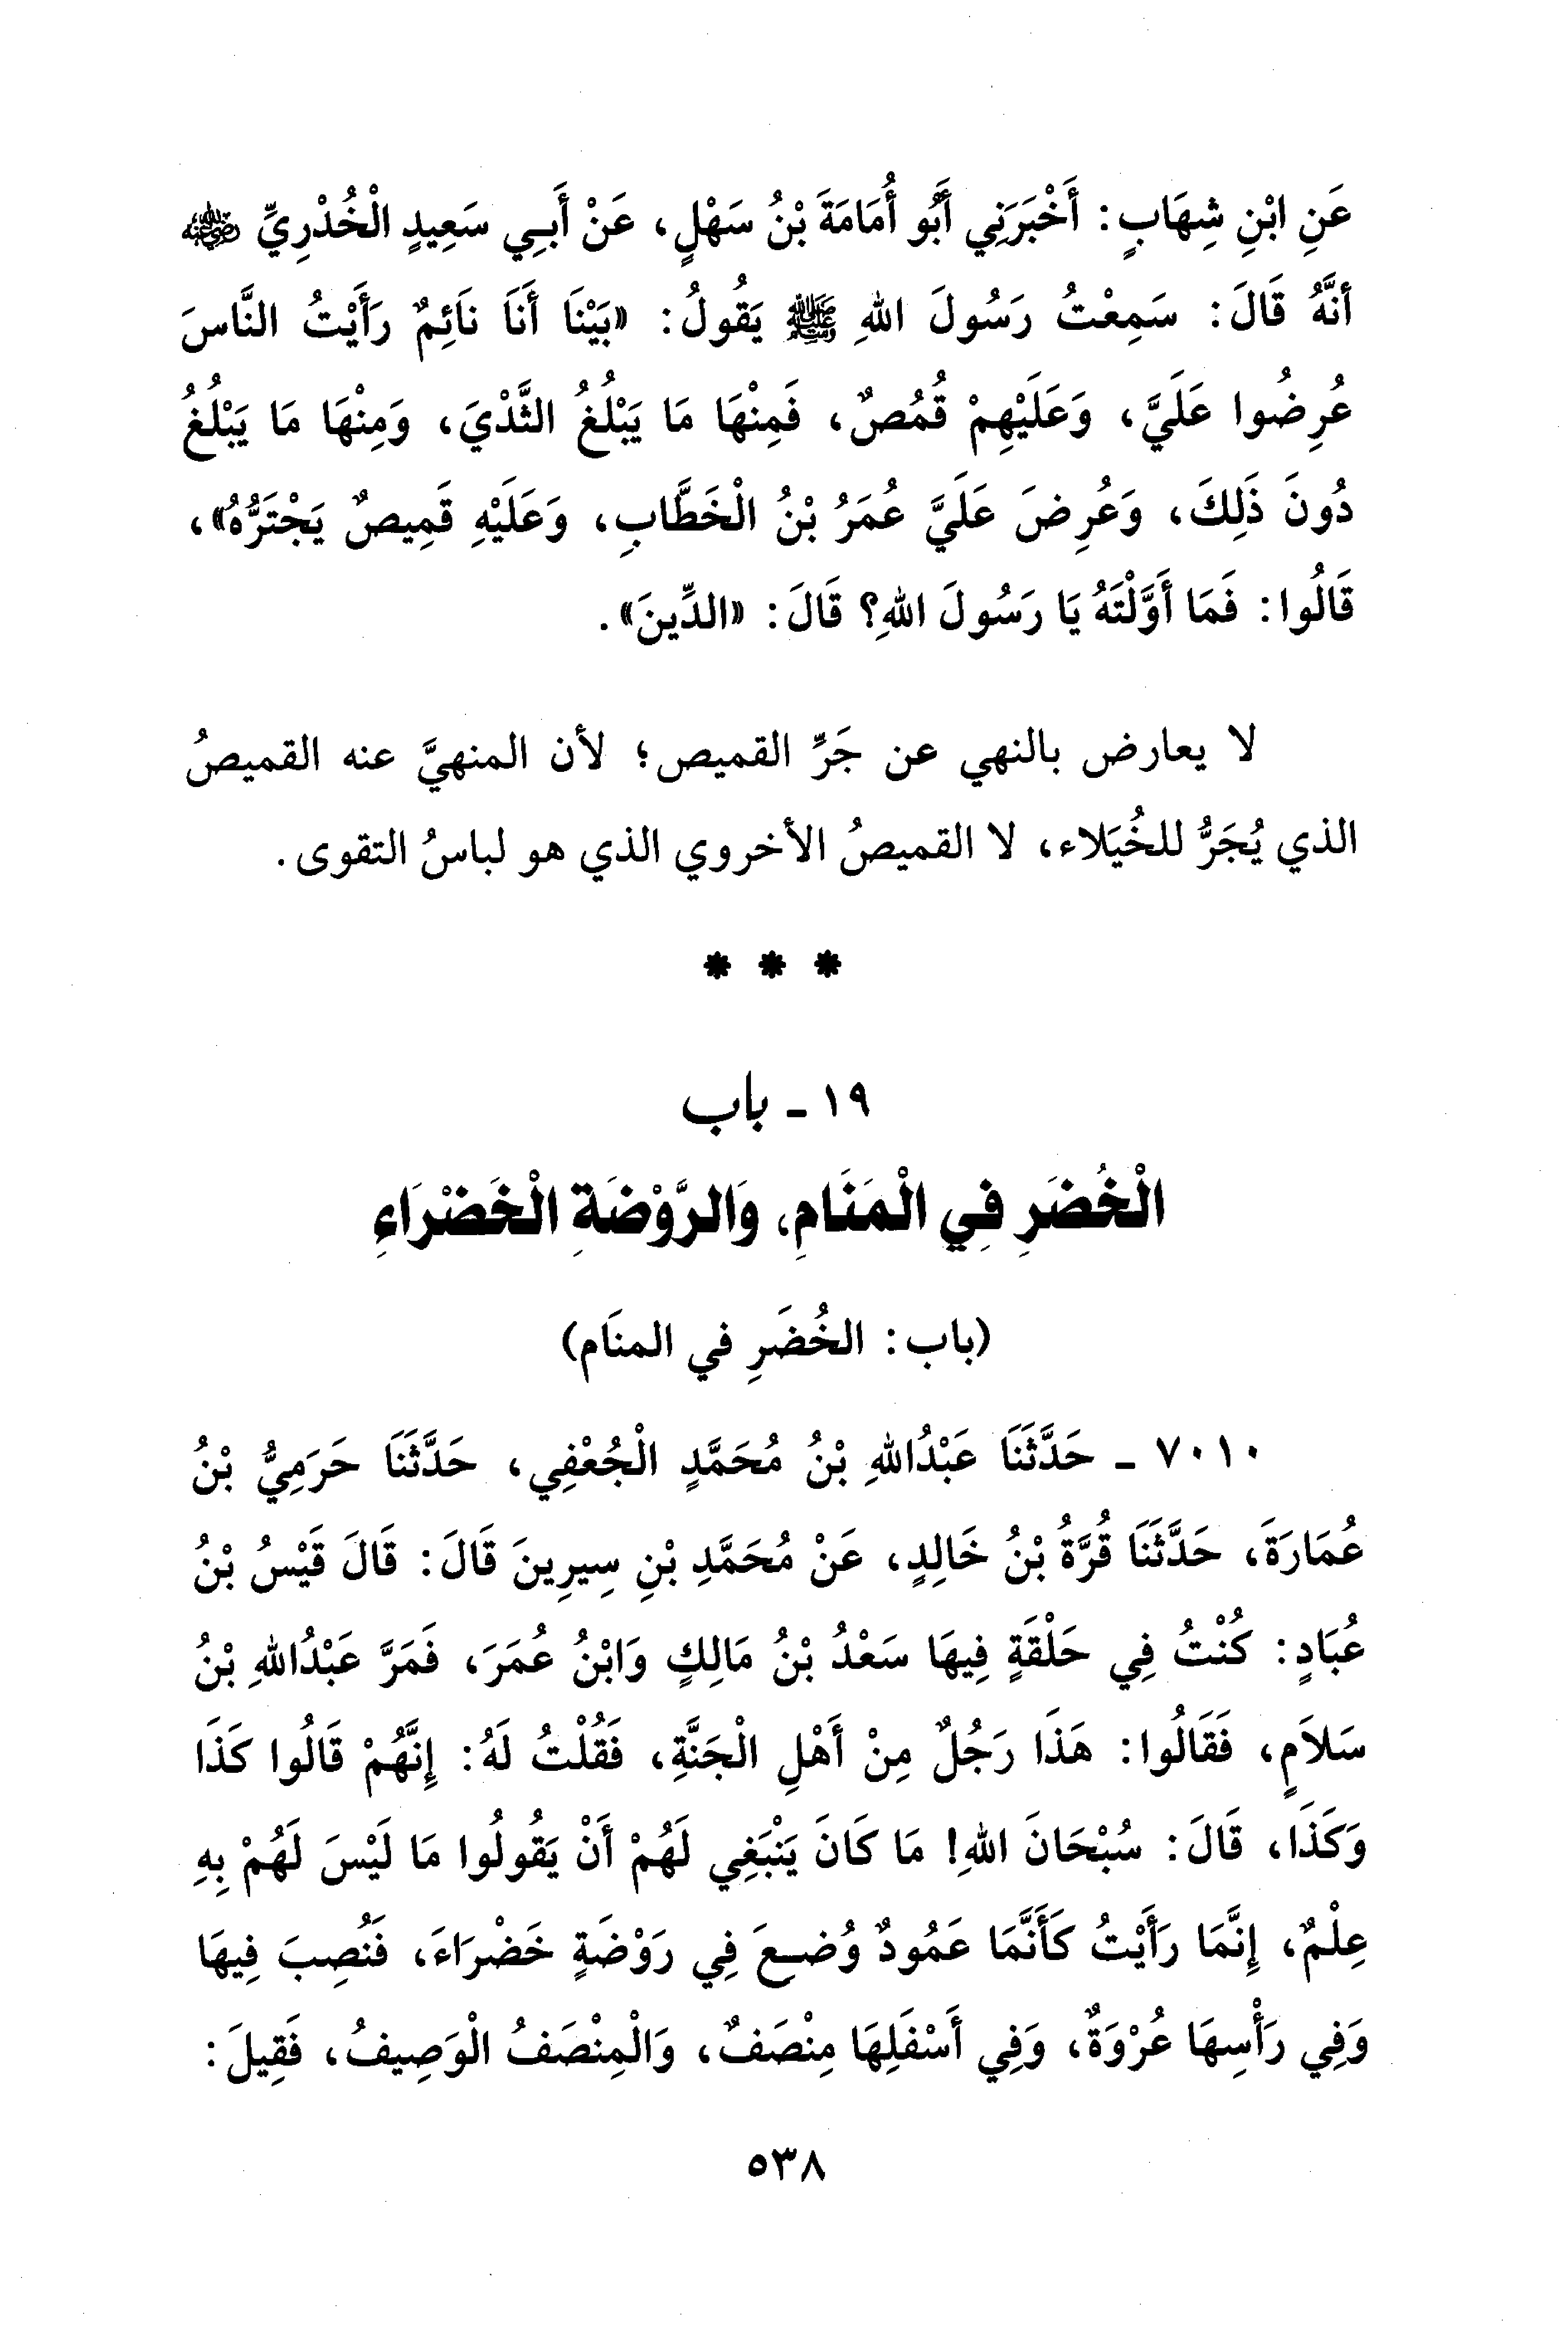 عَنِ ابْنِ شِهَابٍ: أَخْبَرَنِي أَبُو أُمَامَةَ بْنُ سَهْلٍ، عَنْ أَبِي سَعِيدٍ الْخُدْرِيِّ رضي الله عنه
أنَّهُ قَالَ: سَمِعْتُ رَسُولَ اللهِ ﷺ يَقُولُ: «بَيْنَا أَنَا نَائِمٌ رَأَيْتُ النَّاسَ
عُرِضُوا عَلَيَّ، وَعَلَيْهِمْ قُمُصٌ، فَمِنْهَا مَا يَبْلُغُ الثَّدْيَ، وَمِنْهَا مَا يَبْلُغُ
دُونَ ذَلِكَ، وَعُرِضَ عَلَيَّ عُمَرُ بْنُ الْخَطَّابِ، وَعَلَيْهِ قَمِيصٌ يَجْتَرُّهُ»،
قَالُوا: فَمَا أَوَّلْتَهُ يَا رَسُولَ اللهِ؟ قَالَ: «الدِّينَ».
لا يعارض بالنهي عن جَرِّ القميص؛ لأن المنهيَّ عنه القميصُ
الذي يُجَرُّ للخُيَلاء، لا القميصُ الأخروي الذي هو لباسُ التقوى.
* * *
١٩ ـ باب
الْخُضَرِ فِي الْمَنَامِ، وَالرَّوْضَةِ الْخَضْرَاءِ
(باب: الخُضَرِ في المنَام)
٧٠١٠ ـ حَدَّثَنَا عَبْدُاللهِ بْنُ مُحَمَّدٍ الْجُعْفِي، حَدَّثَنَا حَرَمِيُّ بْنُ
عُمَارَةَ، حَدَّثَنَا قُرَّةُ بْنُ خَالِدٍ، عَنْ مُحَمَّدِ بْنِ سِيرِينَ قَالَ: قَالَ قَيْسُ بْنُ
عُبَادٍ: كُنْتُ فِي حَلْقَةٍ فِيهَا سَعْدُ بْنُ مَالِكٍ وَابْنُ عُمَرَ، فَمَرَّ عَبْدُاللهِ بْنُ
سَلاَمٍ، فَقَالُوا: هَذَا رَجُلٌ مِنْ أَهْلِ الْجَنَّةِ، فَقُلْتُ لَهُ: إِنَّهُمْ قَالُوا كَذَا
وَكَذَا، قَالَ: سُبْحَانَ اللهِ! مَا كَانَ يَنْبَغِي لَهُمْ أَنْ يَقُولُوا مَا لَيْسَ لَهُمْ بِهِ
عِلْمٌ، إِنَّمَا رَأَيْتُ كَأَنَّمَا عَمُودٌ وُضِعَ فِي رَوْضَةٍ خَضْرَاءَ، فَنُصِبَ فِيهَا
وَفِي رَأْسِهَا عُرْوَةٌ، وَفِي أَسْفَلِهَا مِنْصَفٌ، وَالْمِنْصَفُ الْوَصِيفُ، فَقِيلَ:
٥٣٨